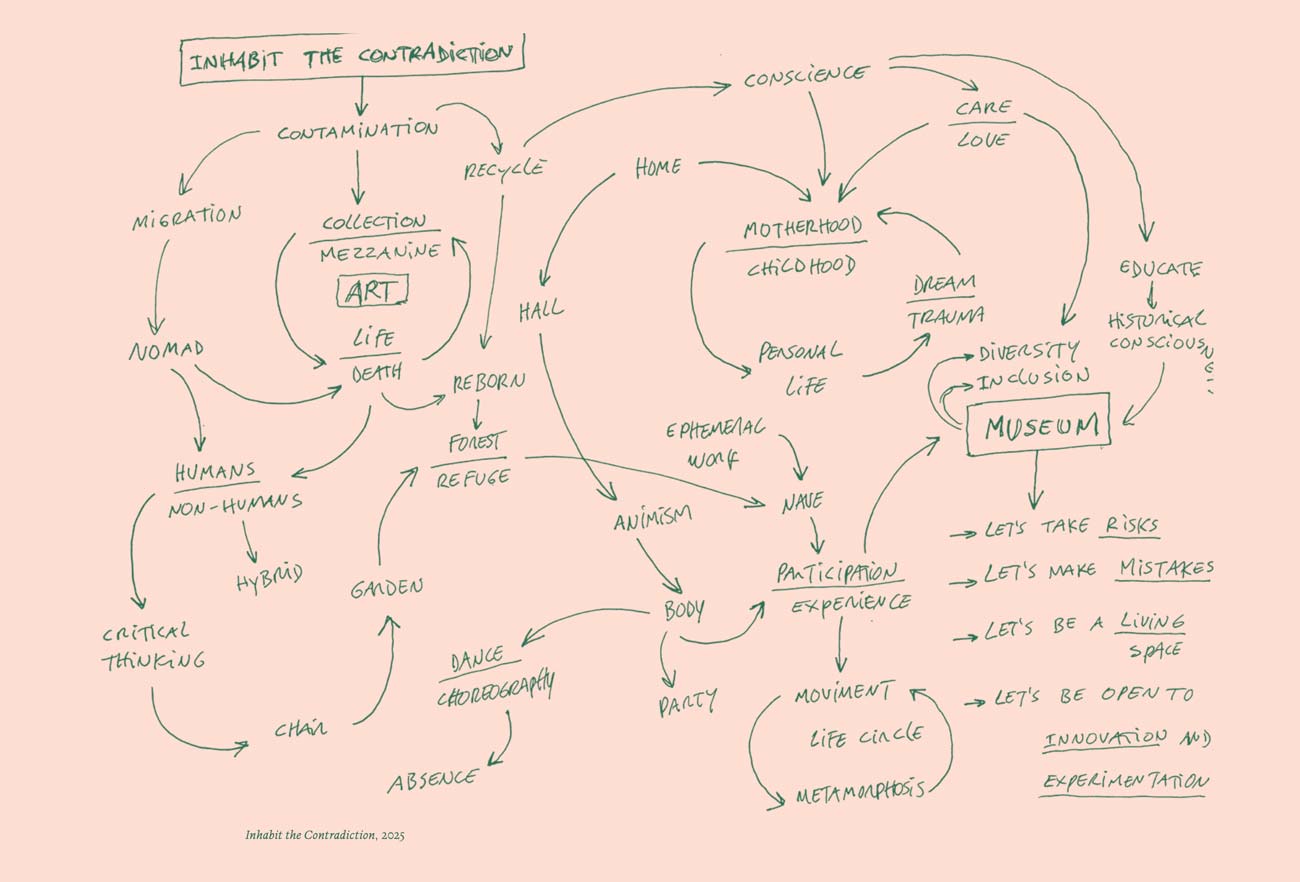 INHABIT THE CONTRADICTION
CONTAMINATION
MIGRATION
NOMAD
COLLECTION
MEZZANINE
ART
LIFE
DEATH
RECYCLE
REBORN
FOREST
REFUGE
HUMANS
NON-HUMANS
HYBRID
CRITICAL
THINKING
CHAIR
GARDEN
CONSCIENCE
HOME
HALL
CARE
LOVE
MOTHERHOOD
CHILDHOOD
DREAM
TRAUMA
PERSONAL
LIFE
EDUCATE
HISTORICAL
DIVERSITY
INCLUSION
MUSEUM
EPHEMERAL
WORK
NAVE
ANIMISM
BODY
PARTICIPATION
EXPERIENCE
DANCE
CHOREOGRAPHY
ABSENCE
PARTY
MOVIMENT
LIFE CIRCLE
METAMORPHOSIS
LET'S TAKE RISKS
LET'S MAKE MISTAKES
LET'S BE A LIVING
SPACE
LET'S BE OPEN TO
INNOVATION AND
EXPERIMENTATION
Inhabit the Contradiction, 2025